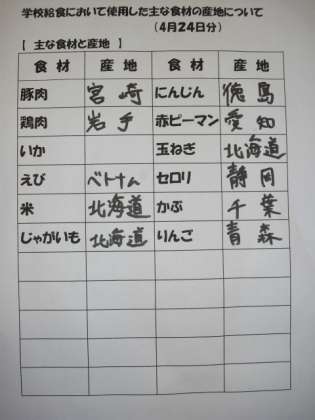 学校給食において使用した主な食材の産地について
(4月24日分)
【 主な食材と産地 】
食 材 産 地 食 材 産 地
豚肉 宮崎 にんじん 徳島
鶏肉 岩手 赤ピーマン 愛知
いか 玉ねぎ 北海道
えび ベトナム セロリ 静岡
米 北海道 かぶ 千葉
じゃがいも 北海道 りんご 青森